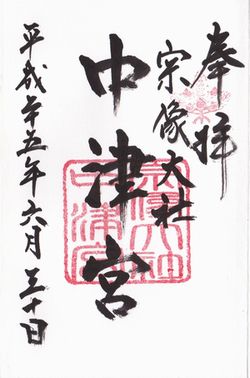 奉拝
宗像大社
中津宮
平成廿五年六月三十日
宗像大社
中津宮